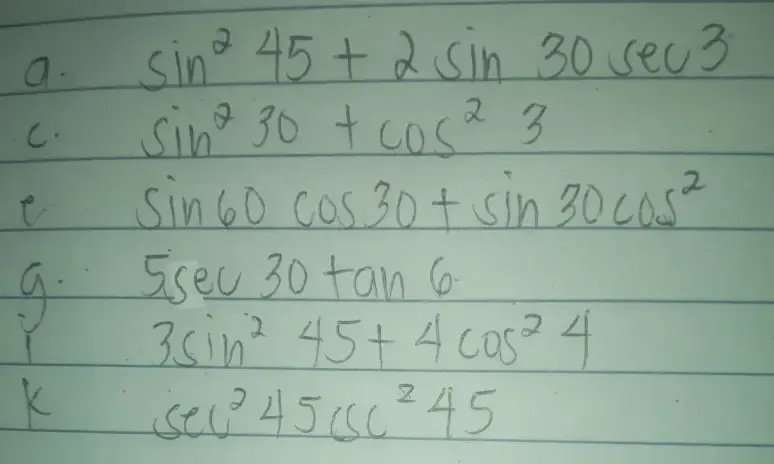 a. sin² 45 + 2 sin 30 sec 3
c. sin² 30 + cos² 3
e sin 60 cos 30 + sin 30 cos²
g. 5 sec 30 tan 6
i 3 sin² 45 + 4 cos² 4
k sec² 45 csc² 45